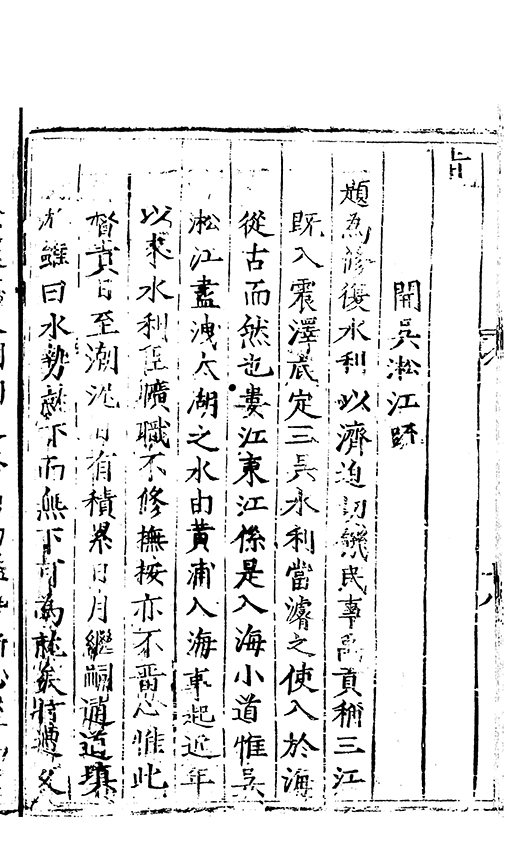 開吳淞江疏
題為修復水利以濟迫切饑民事禹貢稱三江
既入震澤底定三吳水利當濬之使入於海
從古而然也婁江東江係是入海小道惟吳
淞江盡洩太湖之水由黃浦入海事起近年
以來水利臣曠職不修撫按亦不留心惟此
督責日至潮沈日有積累日月繼嗣通道填
雖曰水勢就下而無下可為就矣將遭父